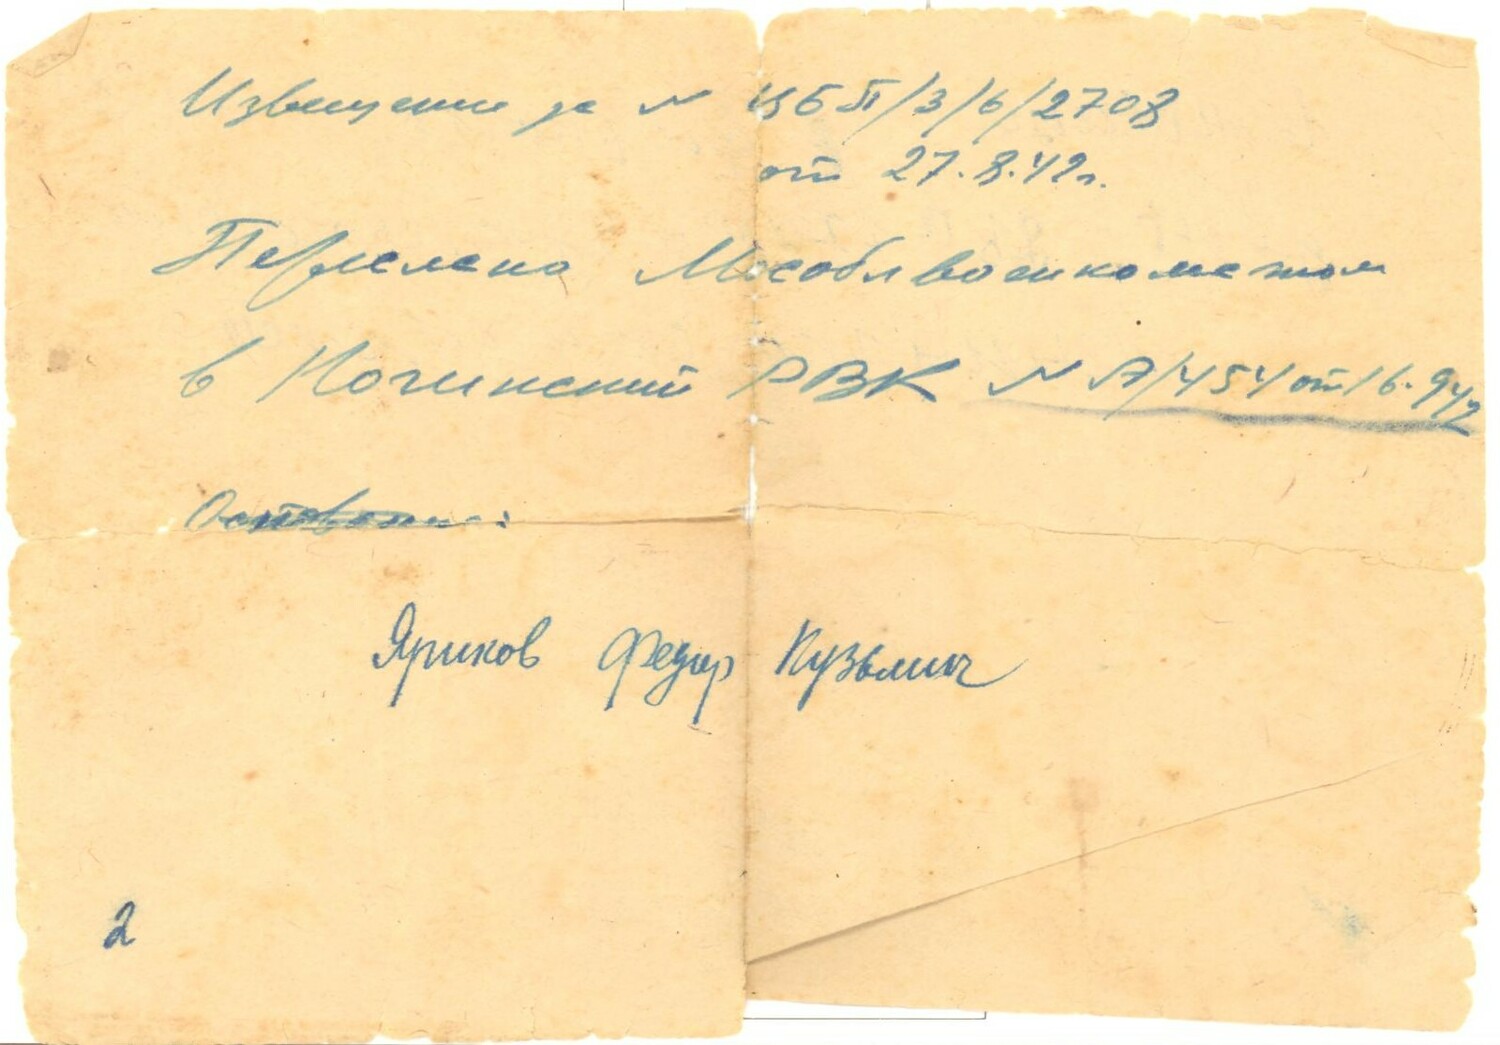 Извещение за N ЦБП/3/6/2708
от 27.8.42г.
Переслено Мособлвоенкоматом
в Ногинский РВК N А/454 от 16.9.42
Основание:
Яриков Федор Кузьмич
2